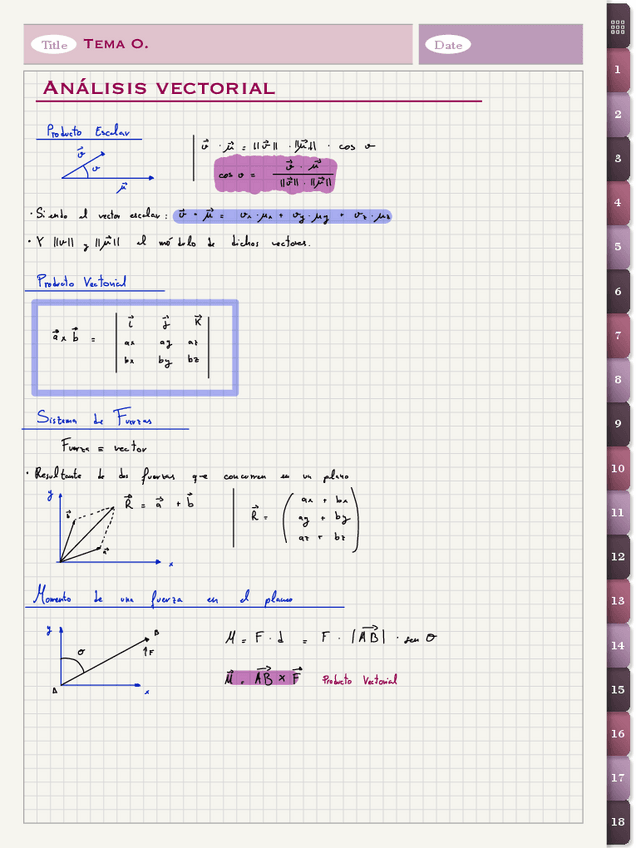 Title TEMA 0. Date
ANÁLISIS VECTORIAL
Producto Escalar
v⃗ · μ⃗ = ||v⃗|| · ||μ⃗|| · cos v
v⃗
v
μ⃗
cos v = v⃗ · μ⃗ / ||v⃗|| · ||μ⃗||
· Siendo el vector escalar: v⃗ · μ⃗ = vx · μx + vy · μy + vz · μz
· Y ||v|| y ||μ⃗|| el módulo de dichos vectores.
Producto Vectorial
a⃗ x b⃗ =
i⃗ j⃗ K⃗
ax ay az
bx by bz
Sistema de Fuerzas
Fuerza = vector
· Resultante de dos fuerzas que concurren en un plano
y
b⃗
a⃗
x
R⃗ = a⃗ + b⃗
R⃗ =
ax + bx
ay + by
az + bz
Momento de una fuerza en el plano
y
σ
B
↑F
A
x
M = F · d = F · |AB⃗| · sen σ
M⃗ = AB⃗ x F⃗ Producto Vectorial
1
2
3
4
5
6
7
8
9
10
11
12
13
14
15
16
17
18